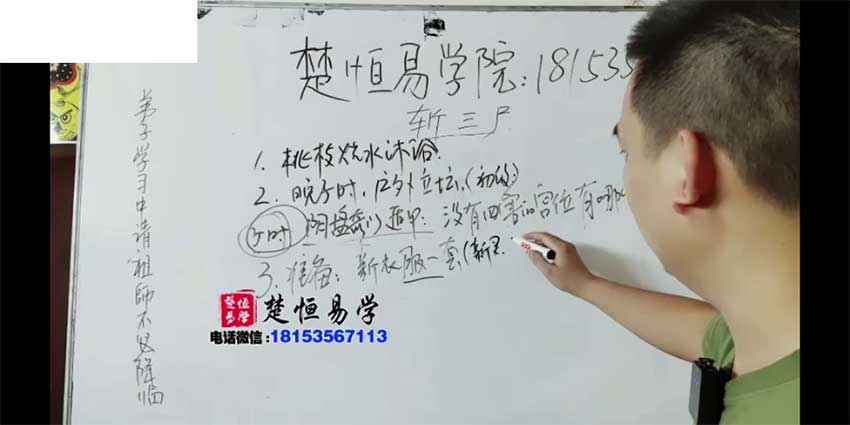 楚恒易学院:181535
斩三尸
1. 桃枝烧水沐浴.
2. 晚子时,户外立坛,(初级)
子时 阴盘奇门遁甲: 没有四害的宫位有哪
3. 准备: 新衣服一套,(新
弟子学习中请祖師不必降临
楚恒易学
楚恒易学
电话微信:18153567113